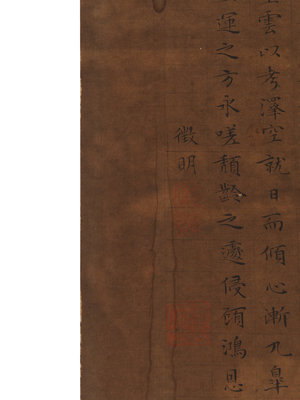 雲以考澤空就日而傾心漸九皐
運之方永嗟頹齡之遽侵頋鴻恩
徵明